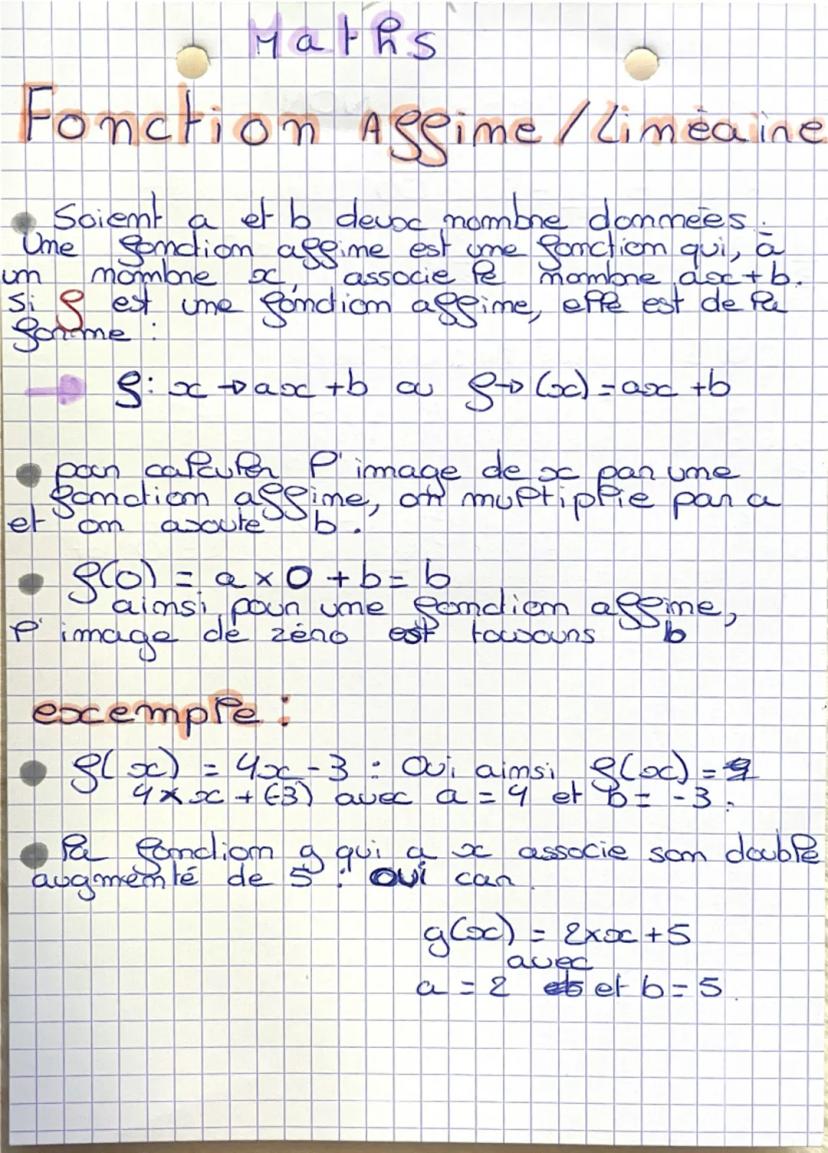 Maths
Fonction Affine / Linéaire
Soient a et b deux nombre données.
Une fonction affine est une fonction qui, à
un nombre x, associe le nombre ax+b.
Si f est une fonction affine, elle est de la
forme :
→ f: x → ax + b ou f→ (x) = ax + b
pour calculer l'image de x par une
fonction affine, on multiplie par a
et on ajoute b.
f(0) = a × 0 + b = b
ainsi pour une fonction affine,
l'image de zéro est toujours b
exemple :
f(x) = 4x - 3 : Oui ainsi f(x) =
4 × x + (-3) avec a = 4 et b = -3.
la fonction g qui a x associe son double
augmenté de 5 : oui car
g(x) = 2 × x + 5
avec
a = 2 et b = 5.